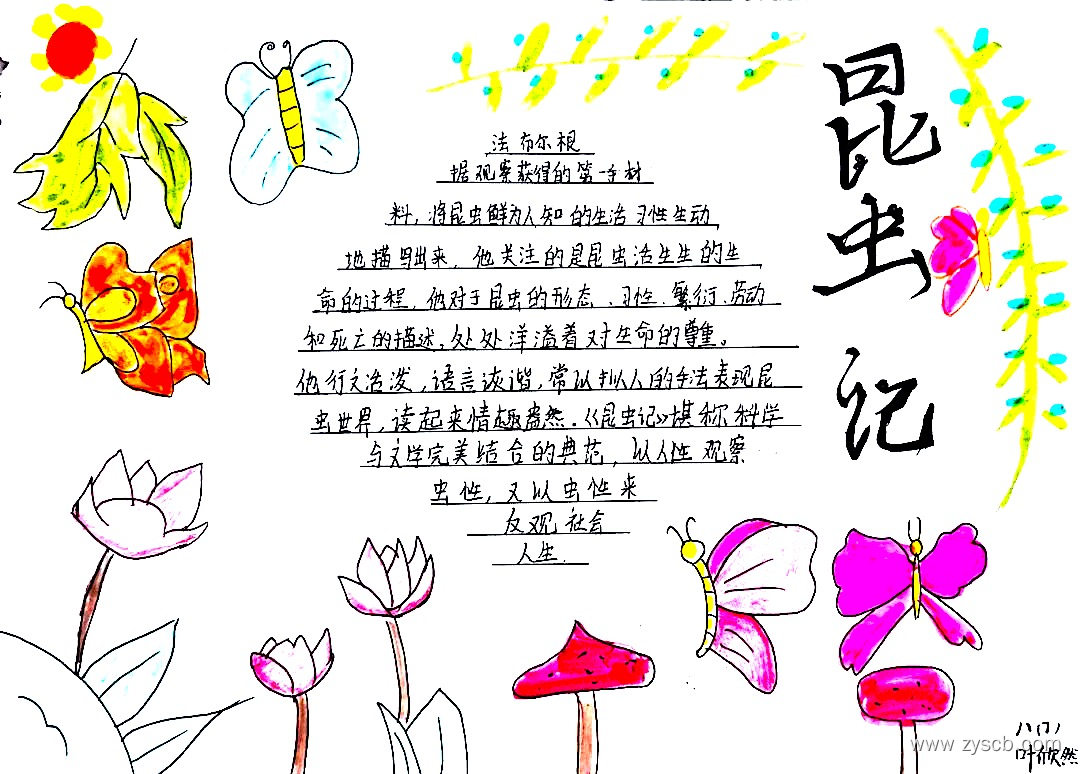 昆虫记
法布尔根
据观察获得的第一手材
料，将昆虫鲜为人知的生活习性生动
地描写出来，他关注的是昆虫活生生的生
命的过程，他对于昆虫的形态、习性、繁衍、劳动
和死亡的描述，处处洋溢着对生命的尊重。
他行文活泼，语言诙谐，常以拟人的手法表现昆
虫世界，读起来情趣盎然。《昆虫记》堪称科学
与文学完美结合的典范，以人性观察
虫性，又以虫性来
反观社会
人生.
八(7)
叶欣然
www.zyscb.com